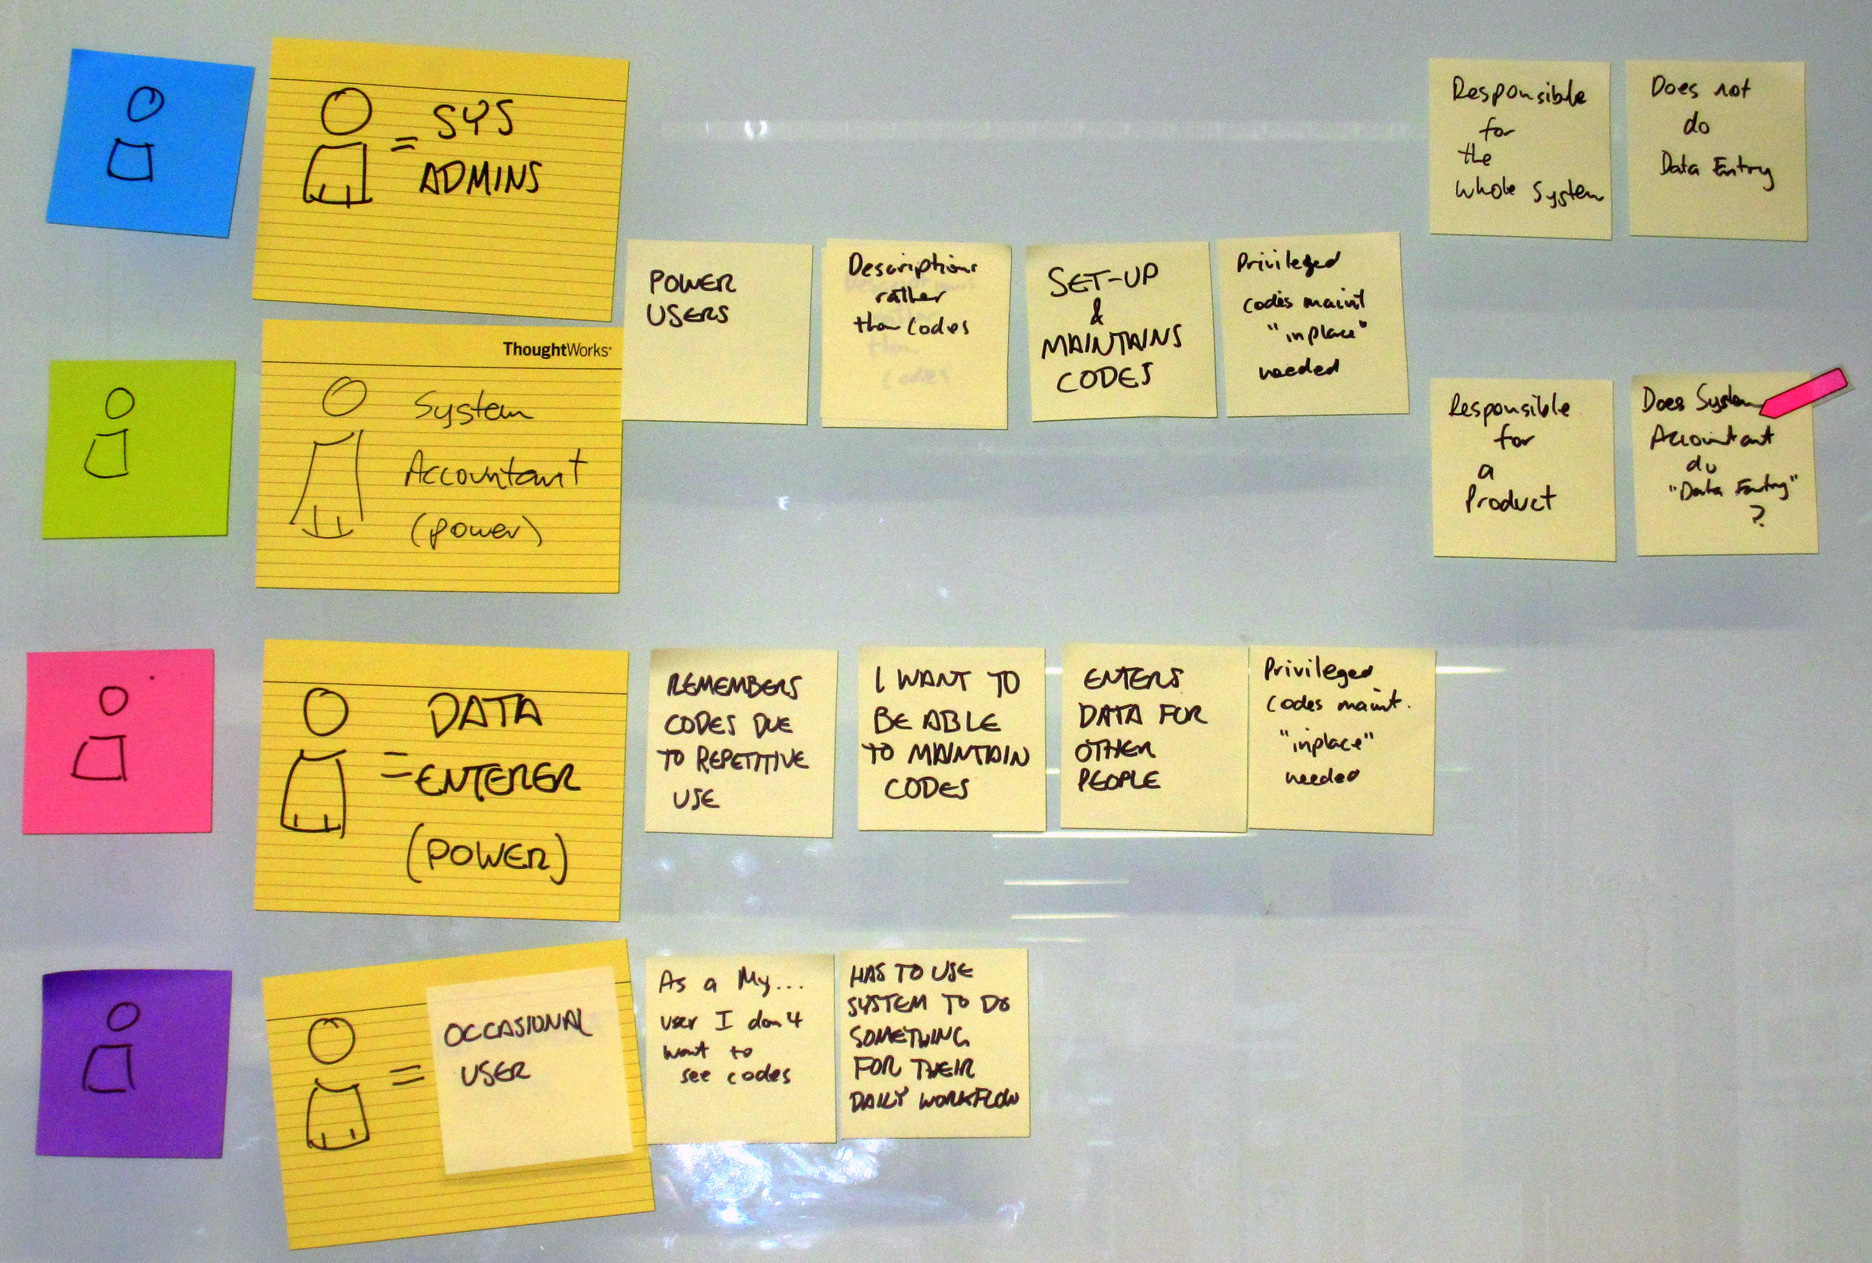 = SYS
ADMINS
Responsible
for
the
whole System
Does not
do
Data Entry
POWER
USERS
Descriptions
rather
than Codes
SET-UP
&
MAINTAINS
CODES
Privileged
codes maint
"inplace"
needed
ThoughtWorks
System
Accountant
(power)
Responsible
for
a
Product
Does System
Accountant
do
"Data Entry"
?
= DATA
ENTERER
(POWER)
REMEMBERS
CODES DUE
TO REPETITIVE
USE
I WANT TO
BE ABLE
TO MAINTAIN
CODES
ENTERS
DATA FOR
OTHER
PEOPLE
Privileged
codes maint.
"inplace"
needed
=
OCCASIONAL
USER
As a My...
user I don't
want to
see codes
HAS TO USE
SYSTEM TO DO
SOMETHING
FOR THEIR
DAILY WORKFLOW